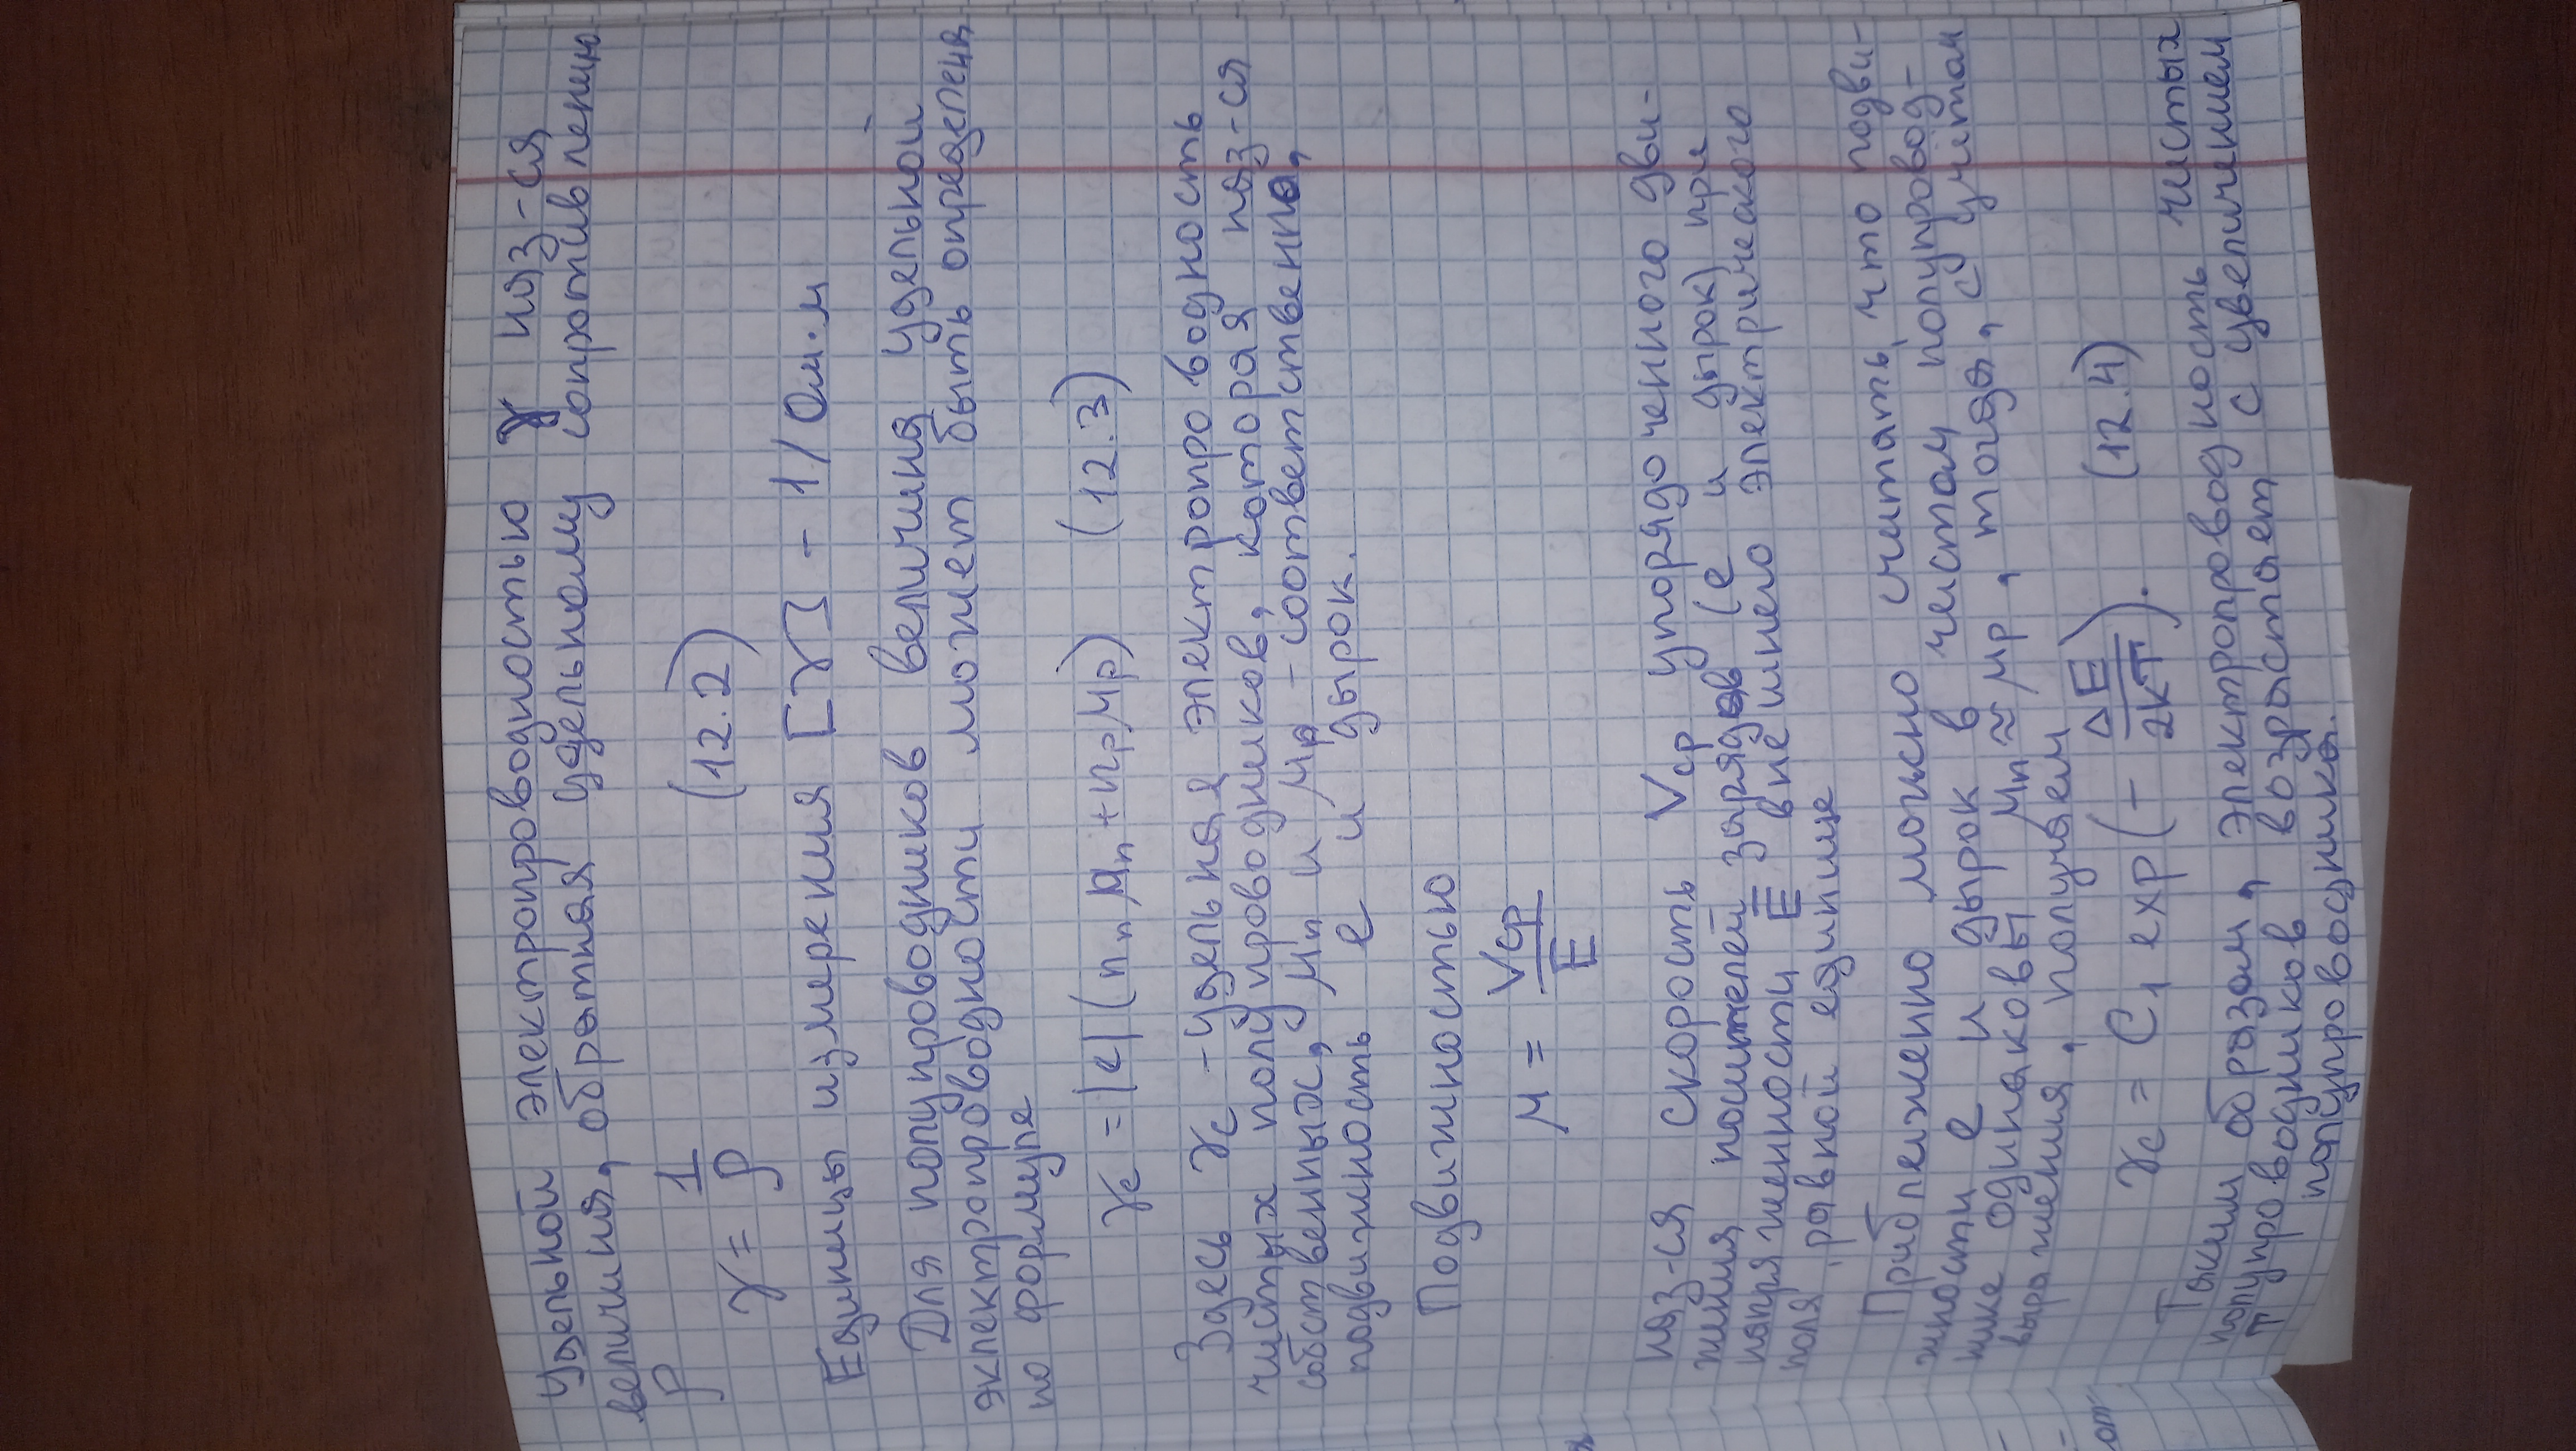 Удельной электропроводностью γ наз-ся
величина, обратная удельному сопротивлению
ρ
γ = 1/ρ (12.2)
Единицы измерения [γ] - 1/Ом·м
Для полупроводников величина удельной
эклектропроводности может быть определена
по формуле
γc = |e| (nn μn + np μp) (12.3)
Здесь γc - удельная электропроводность
чистых полупроводников, которая наз-ся
собственных, μn и μp - соответственно,
подвижность e и дырок.
Подвижностью
μ = Vср/E
наз-ся скорость Vср упорядоченного дви-
жения носителей зарядов (e и дырок) при
напряженности E внешнего электрического
поля, равной единице
Приближенно можно считать, что подви-
жности e и дырок в чистом полупровод-
нике одинаковы μn ≈ μp, тогда, с учётом
выражения, получаем
γc = C1 exp(- ΔE/2kT). (12.4)
Таким образом, электропроводность чистых
полупроводников возрастает с увеличением
T полупроводника.
от-